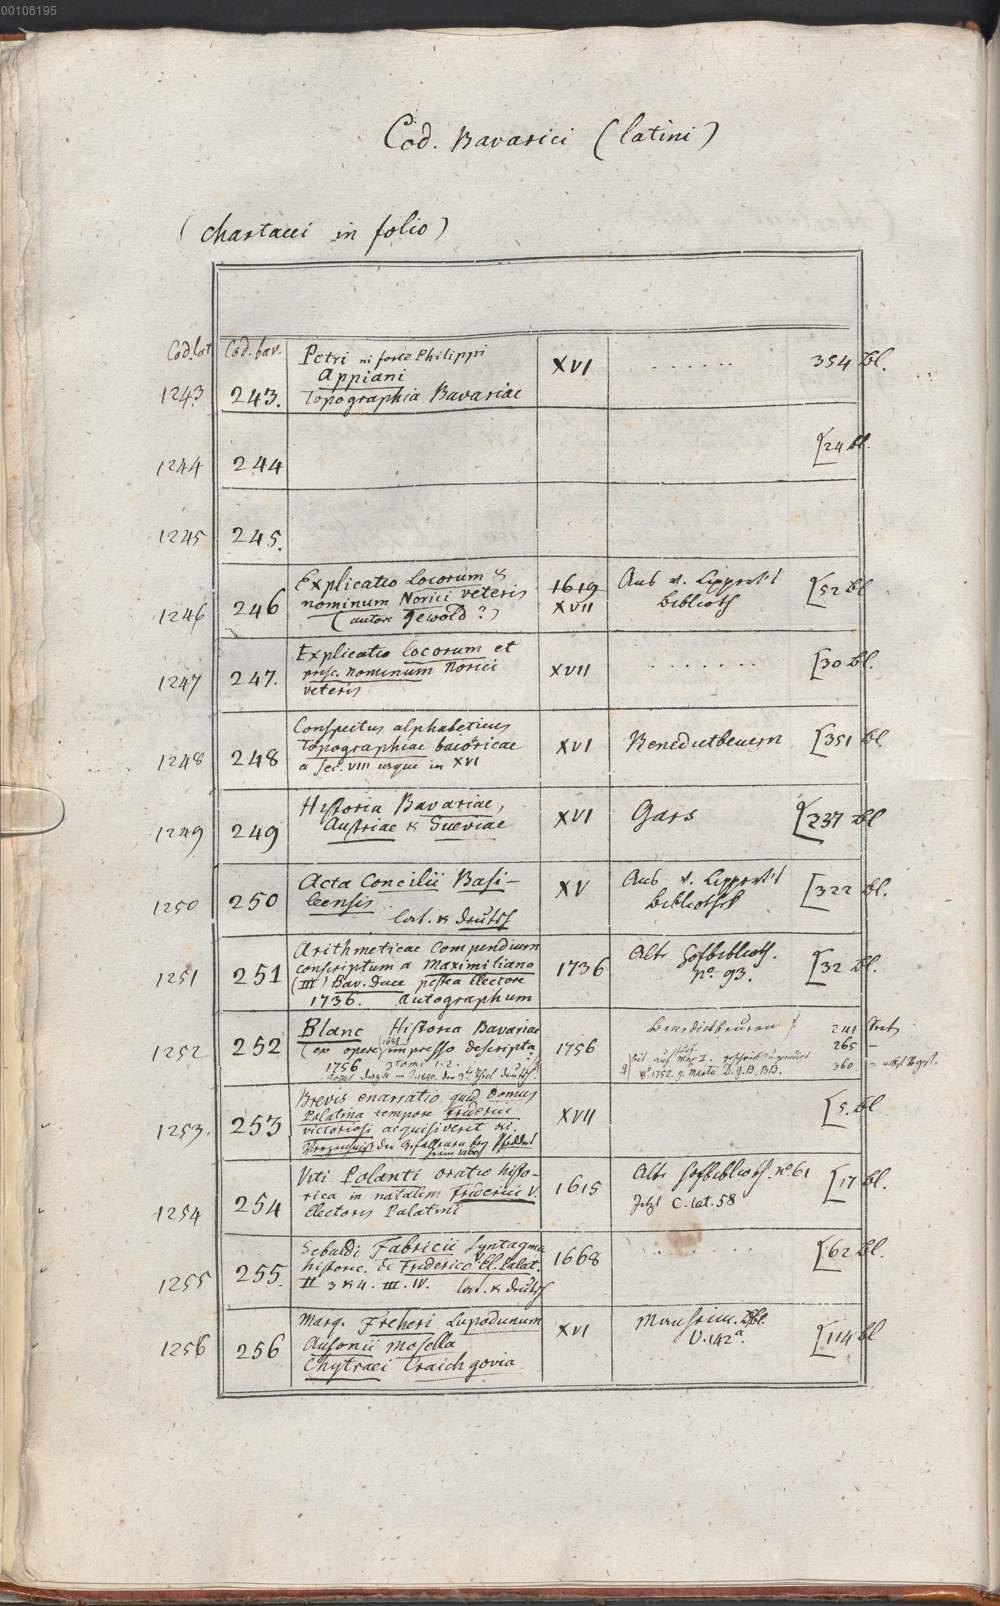 00108195
Cod. Bavarici (latini)
(chartacei in folio)
Cod. lat. Cod. bav.
1243 243. Petri ni forte Philippi
Appiani
Topographia Bavariae XVI . . . . . . 354 Bl.
1244 244 [24 Bl.
1245 245.
1246 246 Explicatio Locorum &
nominum Norici veteris
(autore Gewold?) 1619
XVII Aus v. Lippert's
Biblioth [52 Bl
1247 247. Explicatio locorum et
prisc. nominum Norici
veteris XVII . . . . . . . [30 Bl.
1248 248 Conspectus alphabeticus
topographiae baioricae
a sec. VIII usque in XVI XVI Benedictbeuern [351 Bl.
1249 249 Historia Bavariae,
Austriae & Sueviae XVI Gars [237 Bl
1250 250 Acta Concilii Basi-
leensis
lat. & deutsch XV Aus v. Lippert's
Bibliothek [322 Bl.
1251 251 Arithmeticae Compendium
conscriptum a Maximiliano
(III) Bav. Duce postea Electore
1736. Autographum 1736 Alte Hofbiblioth.
no. 93. [32 Bl.
1252 252 Blanc Historia Bavariae
(ex opere 1680 impresso descripta
1756 Tomi 1. 2. 1756 Benedictbeuern 241
265 –
360
1253. 253 Brevis enarratio quid Domus
Palatina tempore Friderici
victoriosi acquisiverit &c. XVII [5. Bl
1254 254 Viti Polanti oratio histo-
rica in natalem Friderici V.
Electoris Palatini 1615 Alte Hofbiblioth. no 61
Jetzt C. lat. 58 [17 Bl.
1255 255. Sebaldi Fabricii Syntagma
historic. de Friderico El. Palat.
II 3 & 4. III. IV. lat. & deutsch 1668 . . . . . [62 Bl.
1256 256 Marq. Freheri Lupodunum
Ausonii Mosella
Chytraei Craichgovia XVI Mannheim. Bbl.
V. 142a. [114 Bl